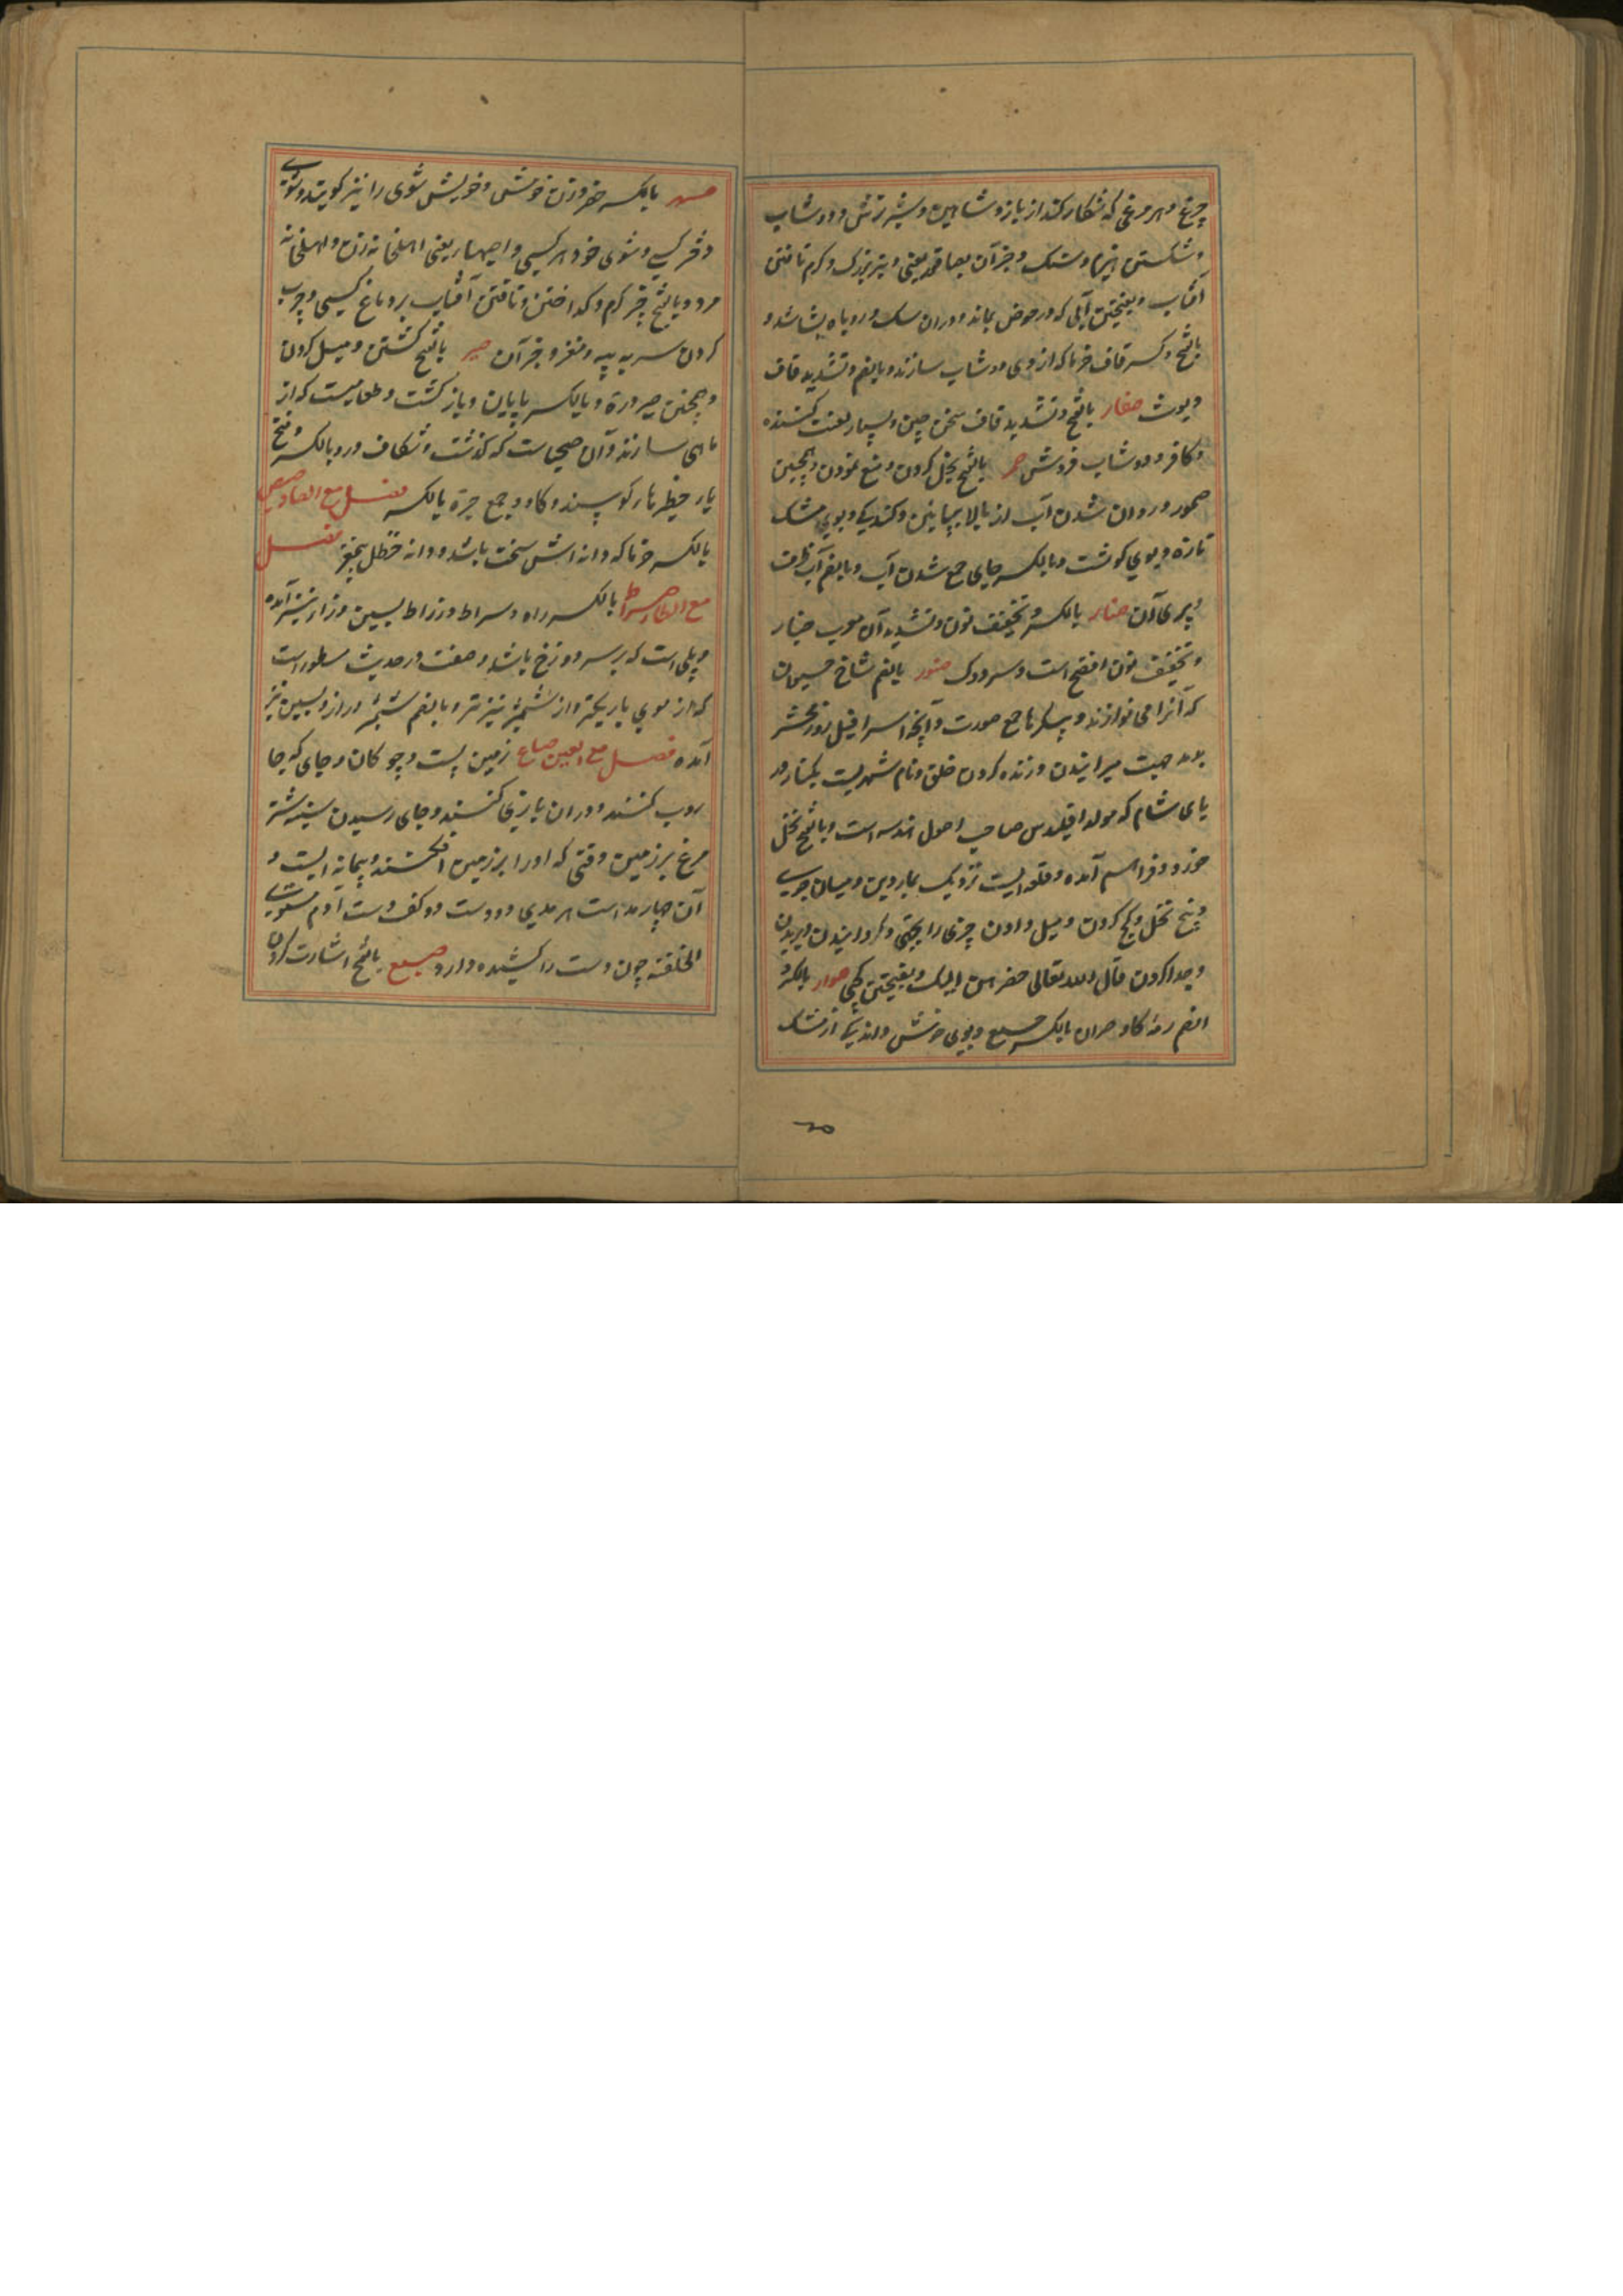 چرغ و هر مرغی که شکار کند از باز و شاهین و شیر ترش و دوشاب
و شکستن هیزم و سنک و جز آن بصاقور یعنی و تبر بزرک و کرم تافتن
آفتاب و بفتحتین آبی که در حوض بماند و در ان سک و روباه بشاشد و
بالفتح و کسر قاف خرما که از وی دوشاب سازند و بالضم و تشدید قاف
دیوث صقار بالفتح و تشدید قاف سخن چین و بسیار لعنت کننده
و کافر و دوشاب فروش صمر بالفتح بخل کردن و منع نمودن و همچنین
صمور و روان شدن آب از بالا بپایین و کندیکی و بوی مشک
تازه و بوی کوشت و بالکسر جای جمع شدن آب و بالضم آب ظرف
و پری آن صنار بالکسر و تخفیف نون و تشدید آن معرب چنار
و تخفیف نون افصح است و سر دوک صور بالضم شاخ حیوان
که آنرا می نوازند و پیکرها جمع صورت و آنچه اسرافیل روز محشر
بدمد جهت میرانیدن و زنده کردن خلق و نام شهریست بکنار در
یای شام که مولد اقیلدس صاحب اصول هندسه است و بالفتح نخل
خورد و فراهم آمده و قلعه ایست نزدیک بماردین و میان
و بیخ نخل و کج کردن و میل دادن چیزی را بجهتی و کردانیدن و بریدن
و جدا کردن قال الله تعالی فصرهن الیک و بفتحتین کجی صوار بالکسر و
الضم رمه کاو صیران بالکسر جمع و بوی خوش و اندکی از مشک
صهر بالکسر خسر و زن خوش و خویش شوی را نیز کویند و شوی
دختر کسی و شوی خواهر کسی و اصهار یعنی اهلخانه زن و اهلخانه
مرد و بالفتح چیز کرم و کداختن و تافتن آفتاب بر دماغ کسی و چرب
کردن سر به پیه و مغز و جز آن صیر بالفتح کشتن و میل کردن
و همچنین صیرورة و بالکسر پایان و باز کشت و طعامیست که از
ماهی سازند و آن صحیاست که کذشت و شکاف در و بالکسر و فتح
یا حظیرهاء کوسپند و کاو و جمع صیرة بالکسر فصل مع الصاد صیص
بالکسر خرما که دانه اش سخت باشد و دانه حنظل بیمغز فصل
مع الطاء صراط بالکسر راه و سراط و زراط بسین و زاء نیز آمده
و پلی است که بر سر دوزخ باشد و صفت در حدیث مسطور است
که از موی باریکتر و از شمشیر تیز تر و بالضم شمشیر دراز و بسین نیز
آمده فصل مع العین صاع زمین پست و چوکان و جای که جا
روب کنند و در ان بازی کنند و جای رسیدن سینه شتر
مرغ بر زمین وقتی که اورا بر زمین افکند و پیمانه ایست و
آن چهار مد است هر مدی دو دست دو کف دست آدم مستوی
الخلقه چون دست را کشیده دارد صبع بالفتح اشارت کردن